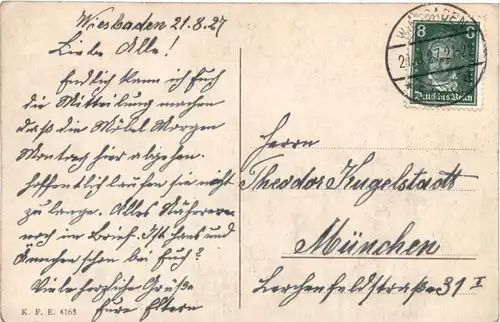 Wiesbaden 21.8.27
Liebe Alle!
Endlich kann ich Euch
die Mitteilung machen
daß die Möbel Morgen
Montag hier abgehen.
Hoffentlich laufen sie nicht
zu lange. Alles Nähere
noch im Brief. Ist Hans und
schon bei Euch?
Viele herzliche Grüße
Eure Eltern
K. F. E. 4163
8 8
Deutsches Reich
WIESBADEN
Herrn
Theodor Kugelstadt
München
Lerchenfeldstraße 31 I